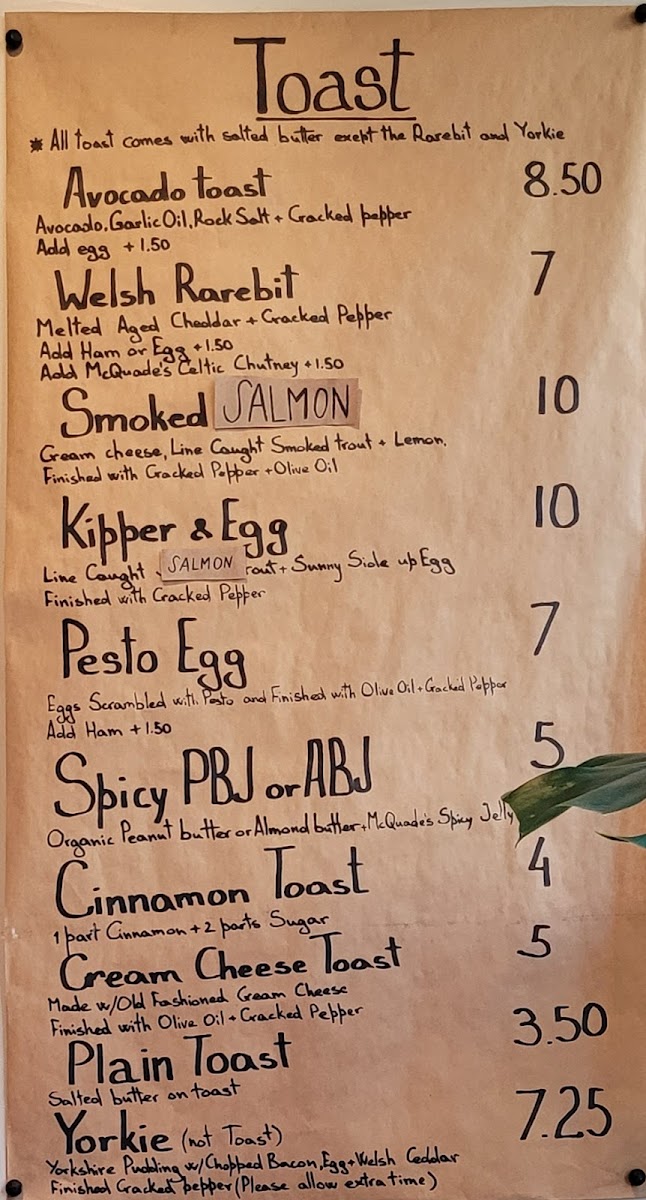 Toast
* All toast comes with salted butter exept the Rarebit and Yorkie
Avocado toast 8.50
Avocado, Garlic Oil, Rock Salt + Cracked pepper
Add egg +1.50
Welsh Rarebit 7
Melted Aged Cheddar + Cracked Pepper
Add Ham or Egg +1.50
Add McQuade's Celtic Chutney +1.50
Smoked SALMON 10
Cream cheese, Line Caught Smoked trout + Lemon.
Finished with Cracked Pepper + Olive Oil
Kipper & Egg 10
Line Caught SALMON rout + Sunny Side up Egg
Finished with Cracked Pepper
Pesto Egg 7
Eggs Scrambled with Pesto and Finished with Olive Oil + Cracked Pepper
Add Ham +1.50
Spicy PBJ or ABJ 5
Organic Peanut butter or Almond butter + McQuade's Spicy Jelly
Cinnamon Toast 4
1 part Cinnamon + 2 parts Sugar
Cream Cheese Toast 5
Made w/Old Fashioned Cream Cheese
Finished with Olive Oil + Cracked Pepper
Plain Toast 3.50
Salted butter on toast
Yorkie (not Toast) 7.25
Yorkshire Pudding w/Chopped Bacon, Egg + Welsh Ceddar
Finished Cracked pepper (Please allow extra time)